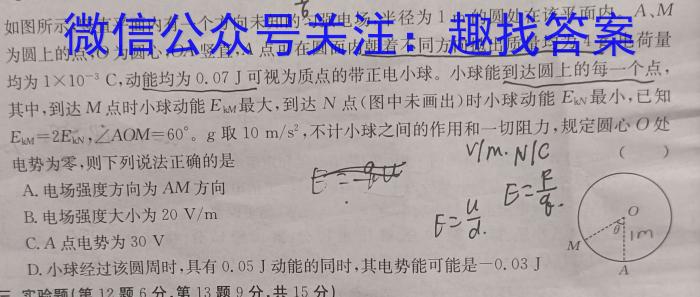 如图所示
个方向未知的
电场
半径为1
的圆处在该平面内
A、M
微信公众号关注：趣找答案
为圆上的点
圆面内朝着不同方
荷量
均为1×10⁻³ C,动能均为0.07 J可视为质点的带正电小球。小球能到达圆上的每一个点,
其中,到达M点时小球动能EkM最大,到达N点(图中未画出)时小球动能EkN最小,已知
EkM=2EkN,∠AOM=60°。g取10 m/s²,不计小球之间的作用和一切阻力,规定圆心O处
电势为零,则下列说法正确的是
( )
V/m. N/C
A. 电场强度方向为AM方向
E=qu
B. 电场强度大小为20 V/m
E=u/d.
E=F/q.
C. A点电势为30 V
D. 小球经过该圆周时,具有0.05 J动能的同时,其电势能可能是-0.03 J
O
θ
1m
M
A
三、实验题(第12题6分,第13题9分,共15分)